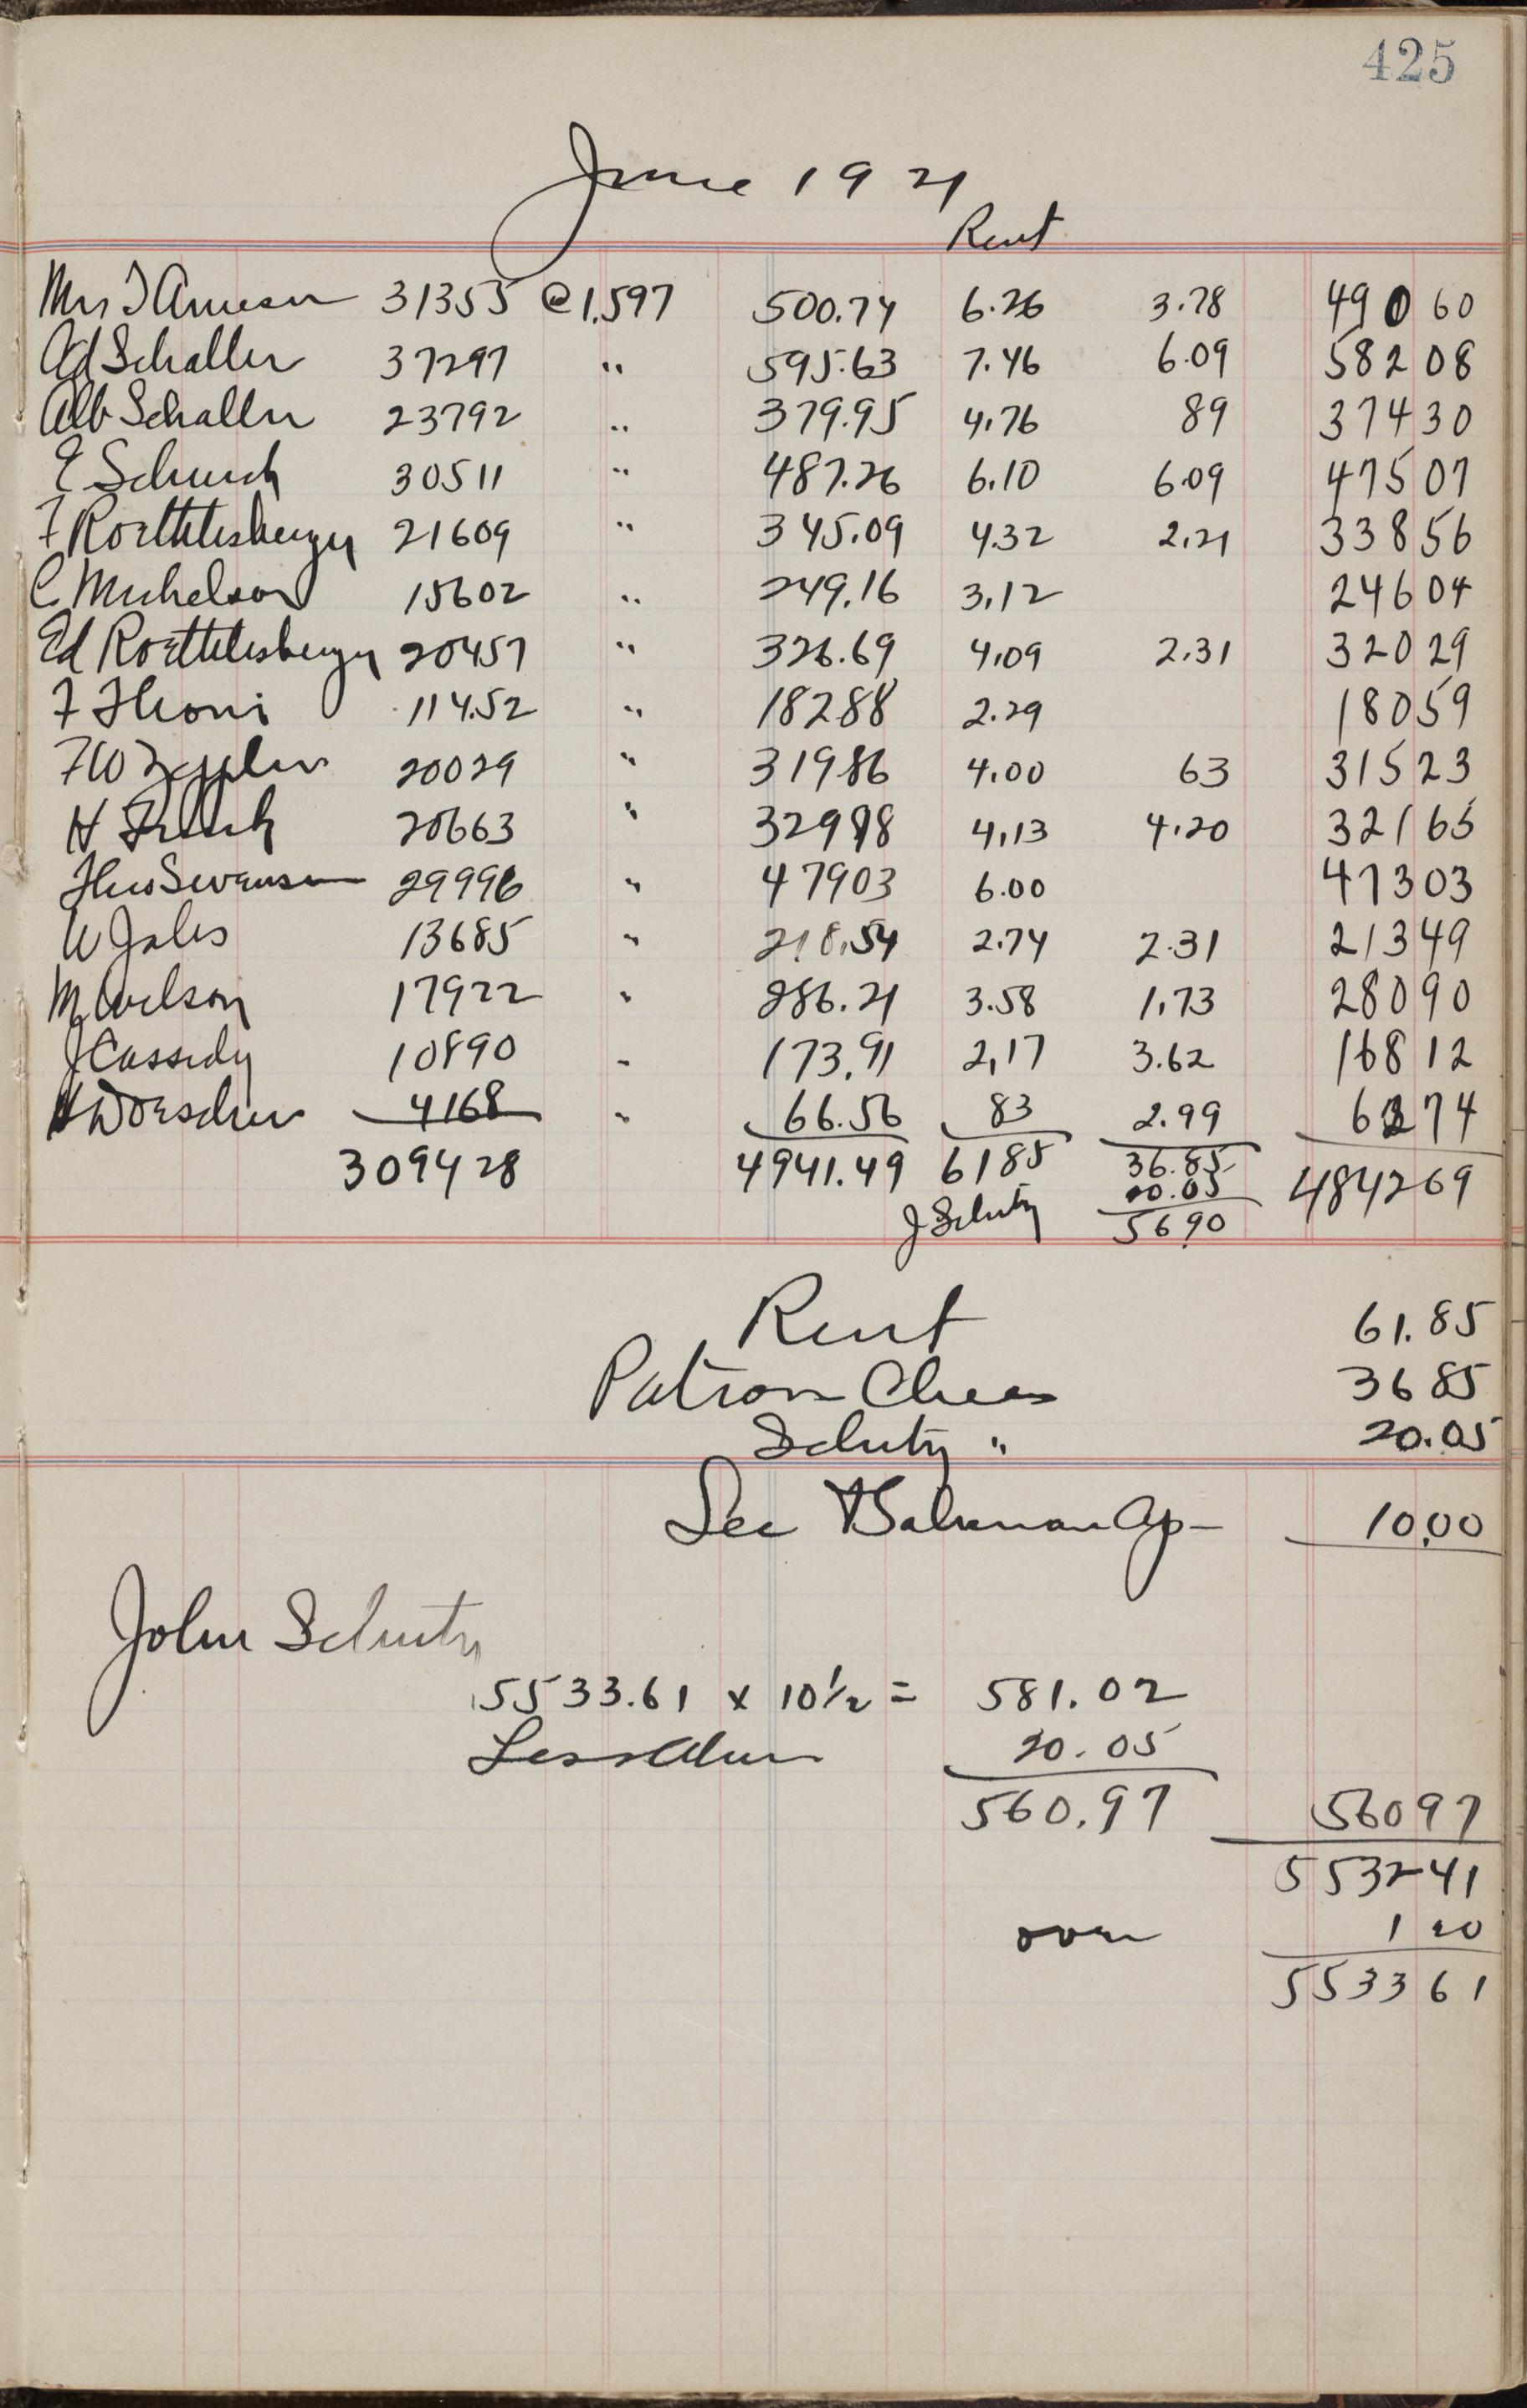 425
June 1921
Rent
Mrs J Arneson 31355 @ 1.597 500.74 6.26 3.78 490 60
Ad Schaller 37297 " 595.63 7.46 6.09 582 08
Alb Schaller 23792 " 379.95 4.76 89 374 30
E Schurch 30511 " 487.26 6.10 6.09 475 07
F Roethlisberger 21609 " 345.09 4.32 2.21 338 56
C Michelson 15602 " 249.16 3.12 246 04
Ed Roethlisberger 20457 " 326.69 4.09 2.31 320 29
F Thoni 11452 " 18288 2.29 180 59
F W Zepplin 20029 " 31986 4.00 63 315 23
H 20663 " 32998 4.13 4.20 321 65
Theo Swenson 29996 " 47903 6.00 473 03
W Jales 13685 " 218.54 2.74 2.31 213 49
M Carlson 17922 " 286.21 3.58 1.73 280 90
J Cassidy 10890 " 173.91 2.17 3.62 168 12
H Woerscher 4168 " 66.56 83 2.99 62 74
309428 4941.49 6185 36.85 484269
J Schutz 20.05
56.90
Rent 61.85
Patrons Chees 36 85
Schutz " 20.05
Sec & Salesman Ap- 10.00
John Schutz
5533.61 x 10½ = 581.02
Less Chees 20.05
560.97 560 97
5532 41
over 1 20
5533 61